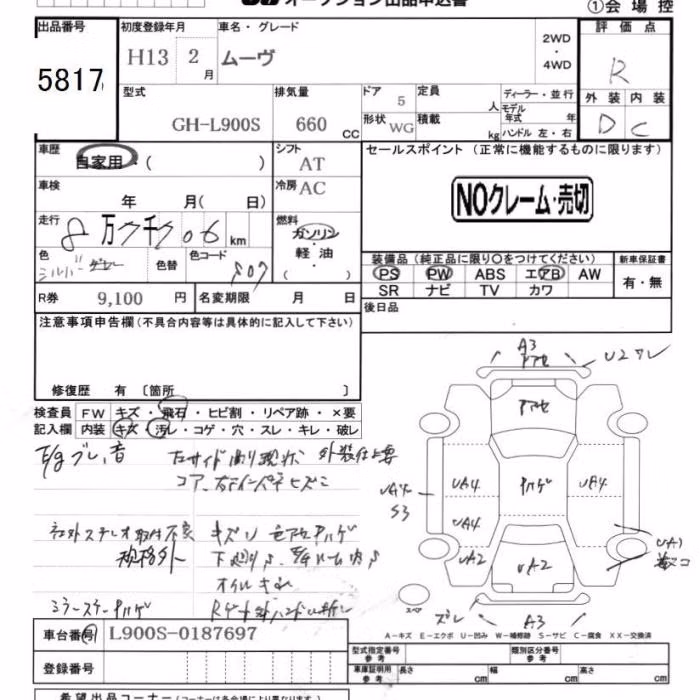 オークション出品申込書
①会場控
出品番号
5817
初度登録年月
H13 2 月
車名・グレード
ムーヴ
2WD
・
4WD
評価点
R
型式
GH-L900S
排気量
660 CC
ドア
5
定員
人
形状
WG
積載
kg
ディーラー・並行
モデル
年式 年
ハンドル 左・右
外装 内装
D C
車歴
自家用・( )
シフト
AT
セールスポイント(正常に機能するものに限ります)
車検
年 月( 日)
冷房
AC
NOクレーム・売切
走行
8万7千706 km
燃料
ガソリン・
軽油・
( )
色
シルバー
色替
色コード
S07
装備品(純正品に限り〇をつけてください)
新車保証書
PS PW ABS エアB AW
SR ナビ TV カワ
有・無
R券
9,100 円
名変期限
月 日
後日品
注意事項申告欄(不具合内容等は具体的に記入して下さい)
修復歴 有〔箇所 〕
検査員
記入欄
FW キズ・飛石・ヒビ割・リペア跡・×要
内装 キズ・汚レ・コゲ・穴・スレ・キレ・破レ
E/gブレ、音
外装仕上要
社外ステレオ取付不良
規格外
キズU
ミラーステーハゲ
A3
U2
UA4
S3
UA4
ハゲ
UA4
UA4
UA2
UA2
UA1
スペ
ズレ
A3
A-キズ E-エクボ U-凹み W-補修跡 S-サビ C-腐食 XX-交換済
車台番号
L900S-0187697
登録番号
型式指定番号
参考
類別区分番号
参考
車庫証明用
参考
長さ cm
幅 cm
高さ cm
希望出品コーナー(コーナーは各会場により異なります)